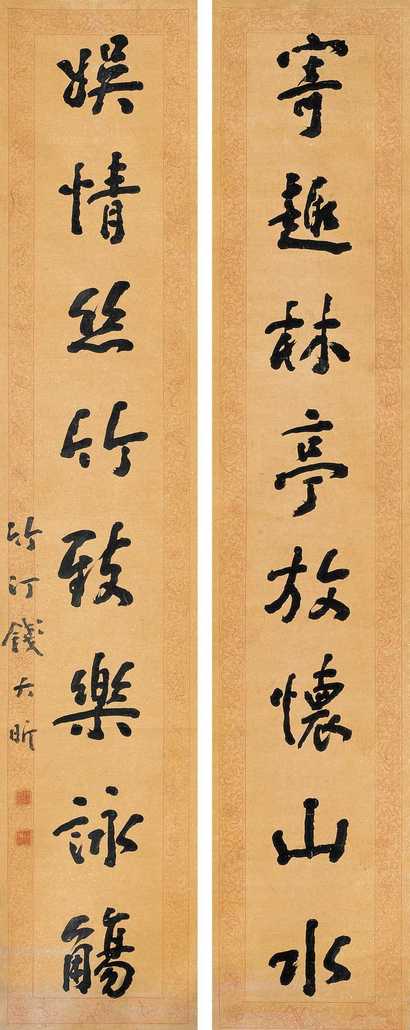 寄趣林亭放懷山水
娛情丝竹致樂詠觴
竹汀錢大昕